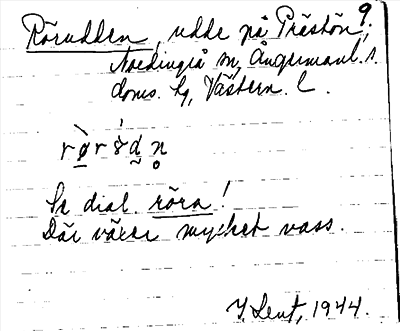 Rörudden, udde på Prästön, 9.
Nordingrå sn, Ångermanl. s.
doms. hg, Västern. l.
Se dial. röra!
Där växer mycket vass.
1944.